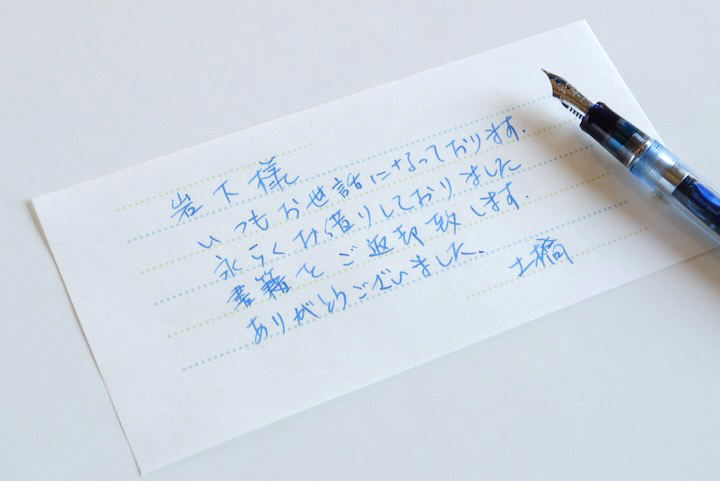 岩下様
いつもお世話になっております.
永らくお借りしておりました
書籍をご返却致します.
ありがとうございました.
土橋